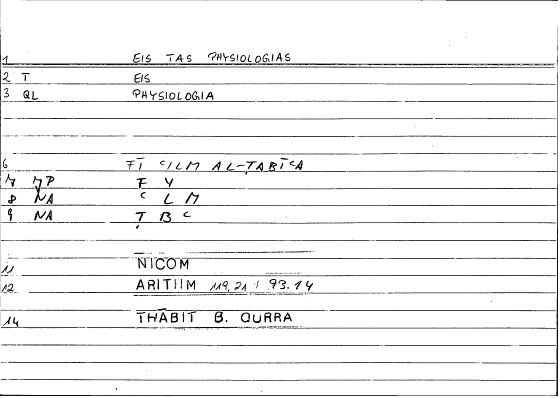 1 EIS TAS PHYSIOLOGIAS
2 T EIS
3 QL PHYSIOLOGIA
6 FĪ ʿILM AL-ṬABĪʿA
7 MP F Y
8 NA ʿ L M
9 NA Ṭ B ʿ
11 NICOM
12 ARITHM 119,21 / 93.14
14 THĀBIT B. QURRA